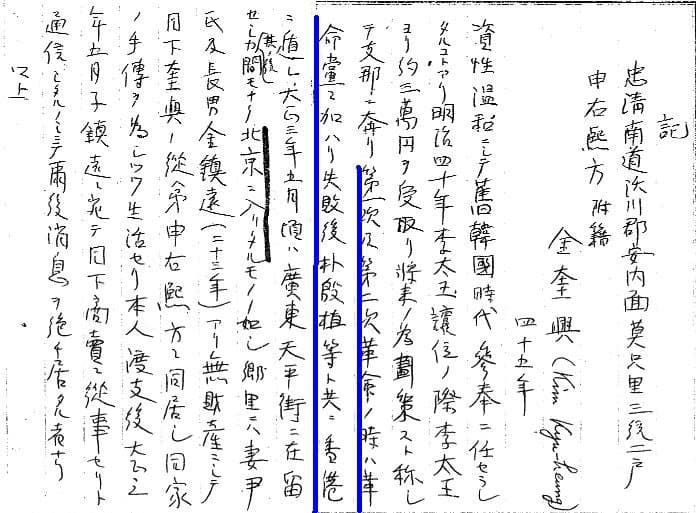 記
忠清南道沃川郡安内面莫只里三統二戸
申右熙方附籍
金奎興(Kim Kyu-heung)
四十五年
資性温和ニシテ舊韓國時代參奉ニ任セラレ
タルコトアリ明治四十年李太王讓位ノ際李太王
ヨリ約三萬円ヲ受取リ將来ノ為畫策スト称シ
テ支那ニ奔リ第一次及第二次革命ノ時ハ革
命黨ニ加ハリ失敗後朴殷植等ト共ニ香港
ニ遁レ大正三年五月頃ハ廣東天平街ニ在留
セシカ其ノ後間モナク北京ニ入リタルモノノ如シ郷里ニハ妻尹
氏及長男金鎮遠(二十三年)アリ無財産ニシテ
同下奎興ノ從弟申右熙方ニ同居シ同家
ノ手傳ヲ為シツツ生活セリ本人渡支後大正三
年五月子鎮遠ニ宛テ同下商賣ニ從事セリト
通信シタルノミニテ爾後消息ヲ絶チ居タル者ナリ
以上